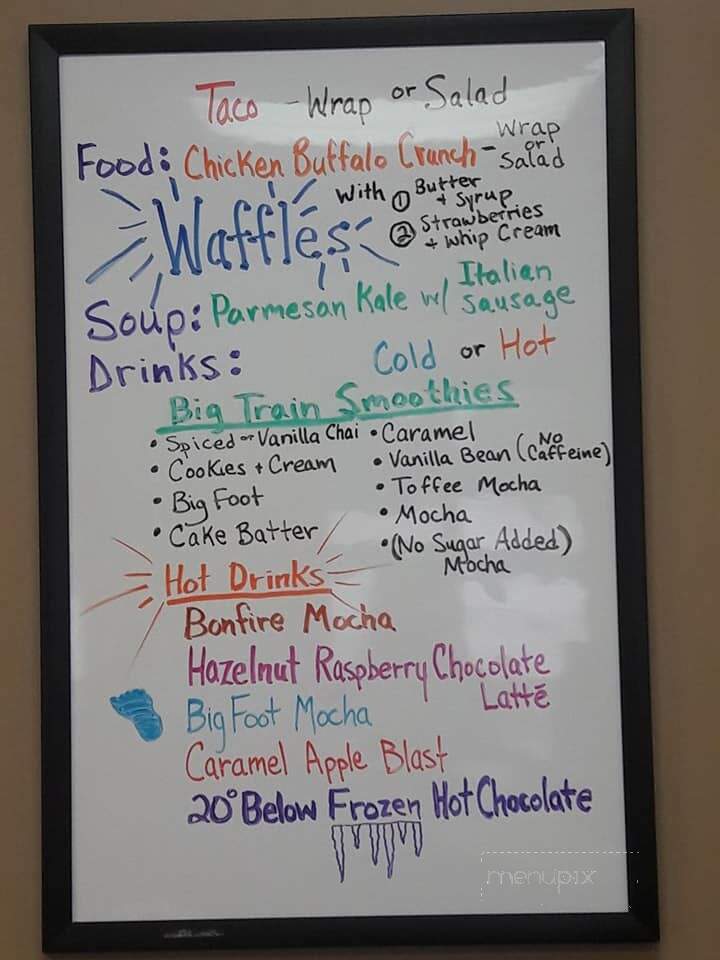 Taco - Wrap or Salad
Food: Chicken Buffalo Crunch - Wrap or Salad
Waffles with ① Butter + Syrup
② Strawberries + Whip Cream
Soup: Parmesan Kale w/ Italian Sausage
Drinks: Cold or Hot
Big Train Smoothies
• Spiced or Vanilla Chai
• Cookies + Cream
• Big Foot
• Cake Batter
• Caramel
• Vanilla Bean (No Caffeine)
• Toffee Mocha
• Mocha
• (No Sugar Added) Mocha
Hot Drinks
Bonfire Mocha
Hazelnut Raspberry Chocolate
Lattē
Big Foot Mocha
Caramel Apple Blast
20° Below Frozen Hot Chocolate
menupix